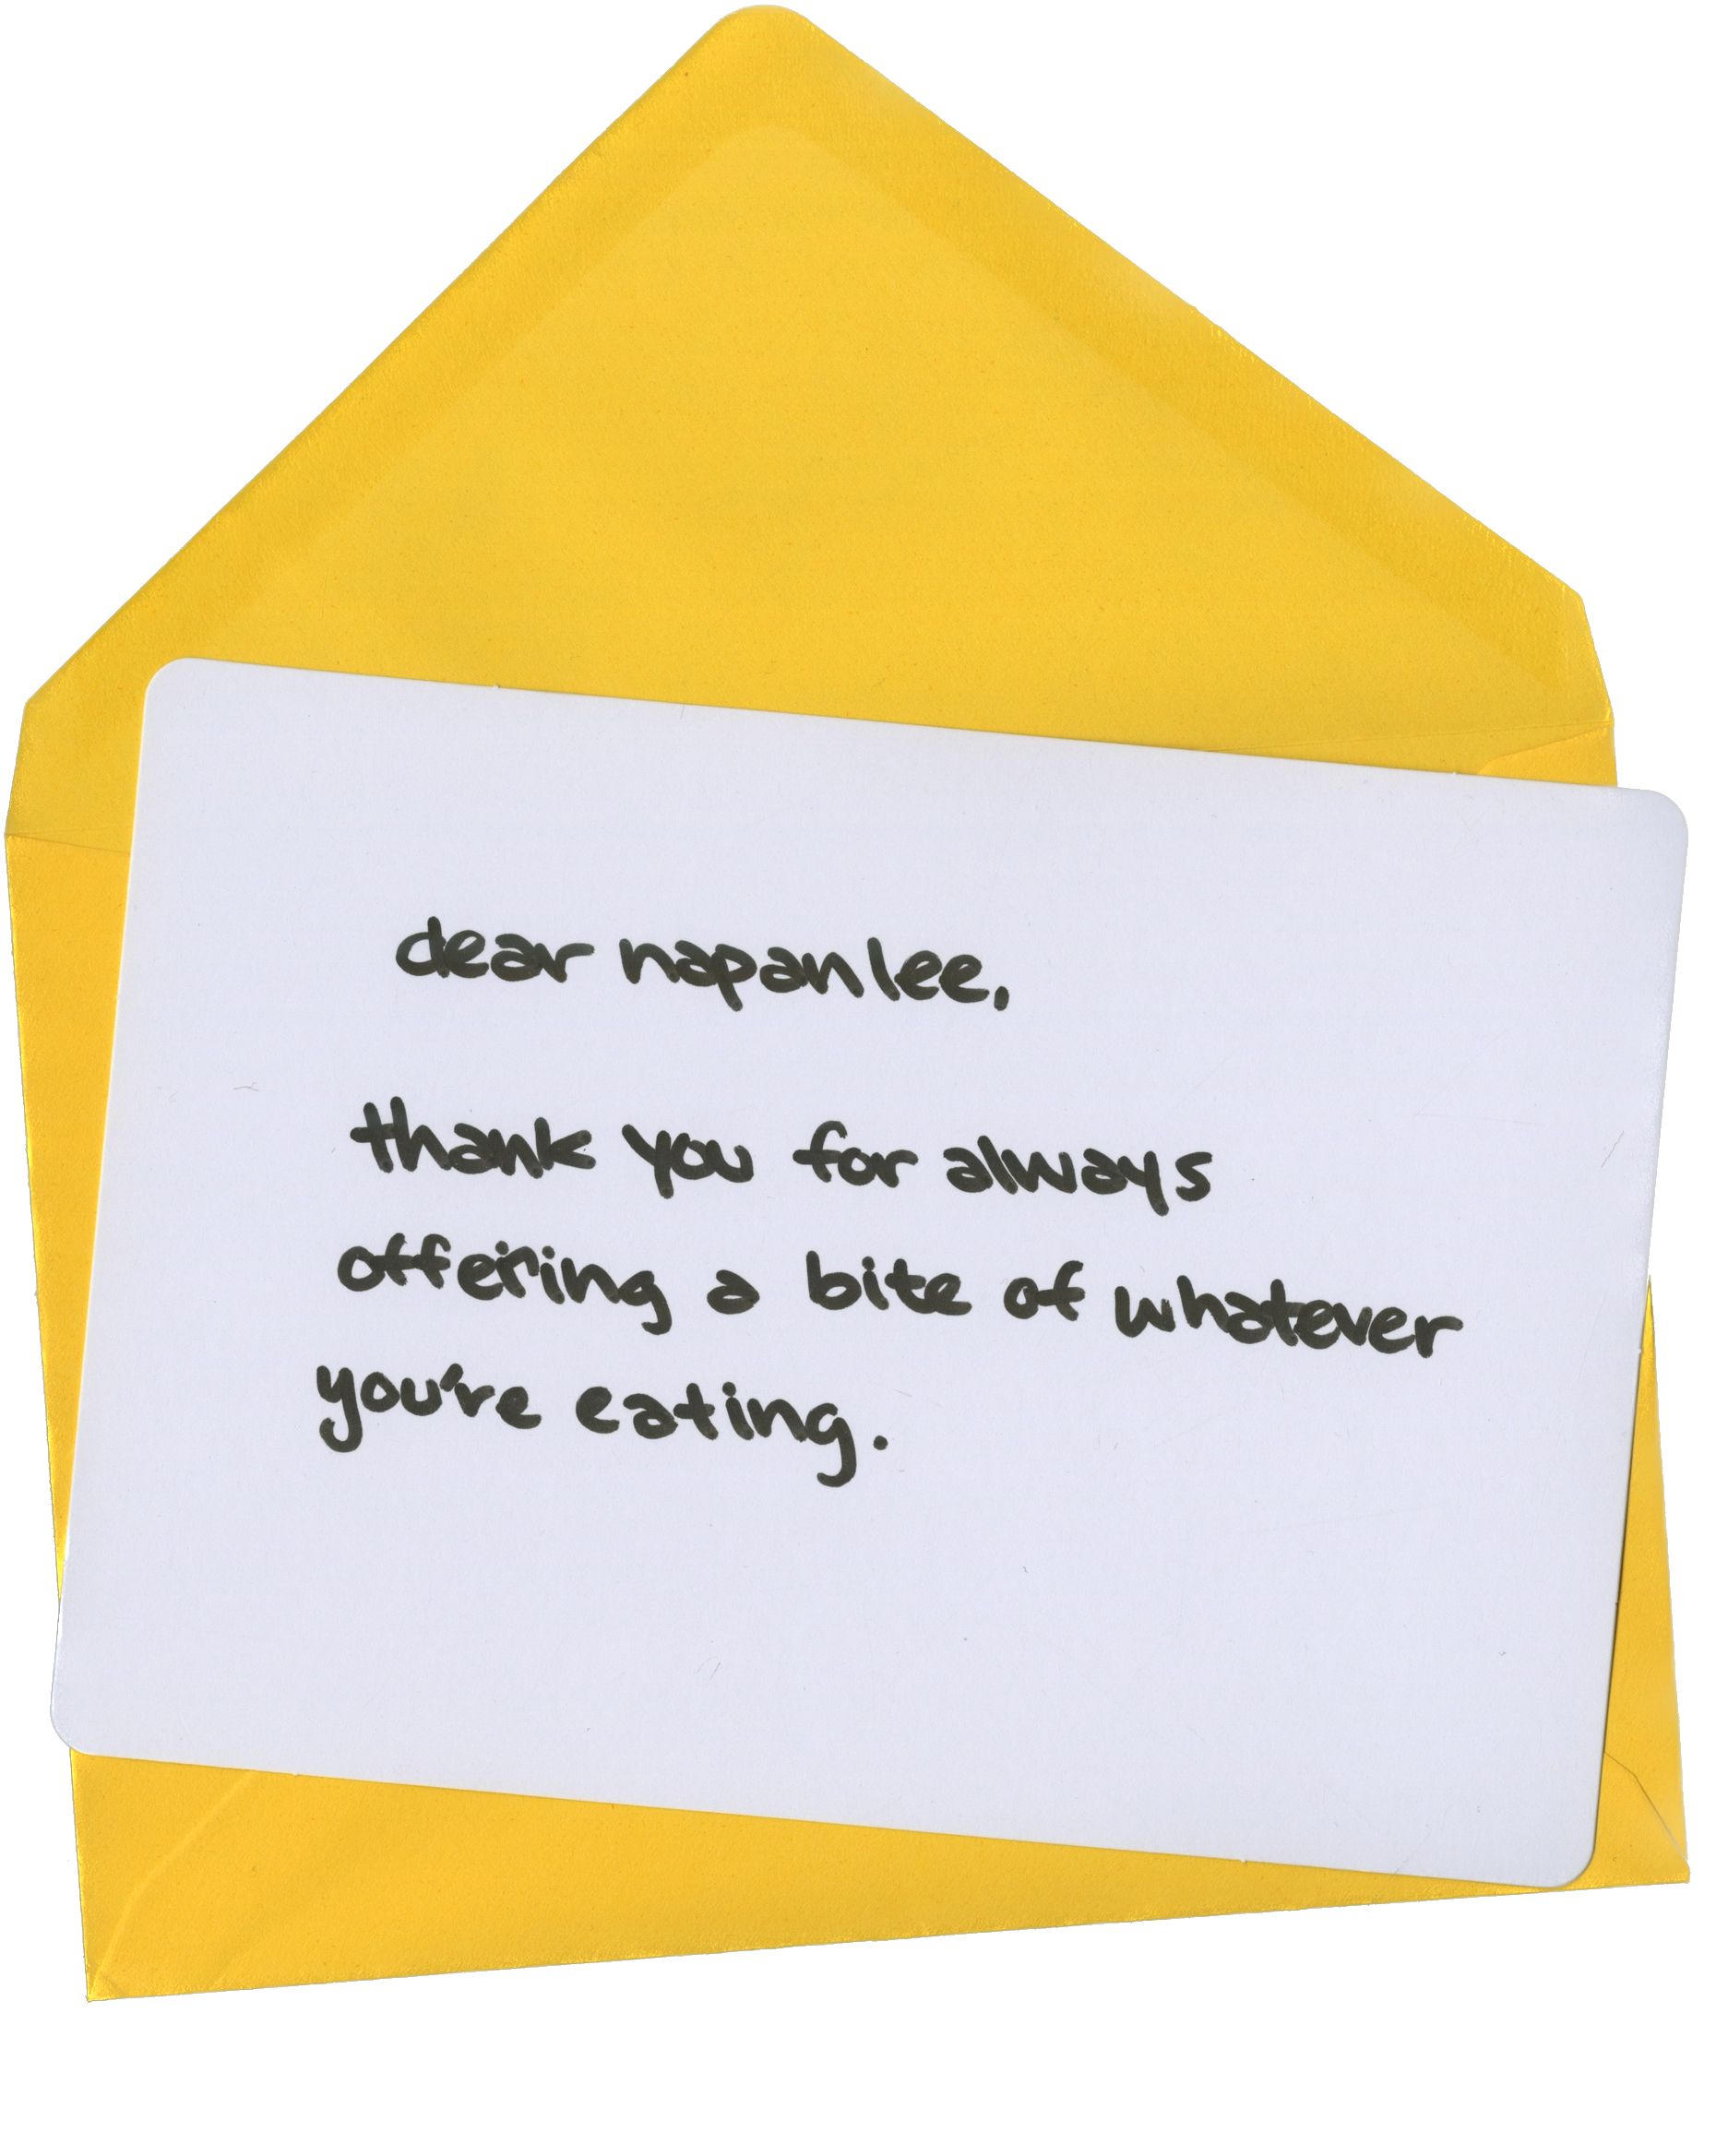 dear napanlee,
thank you for always
offering a bite of whatever
you're eating.